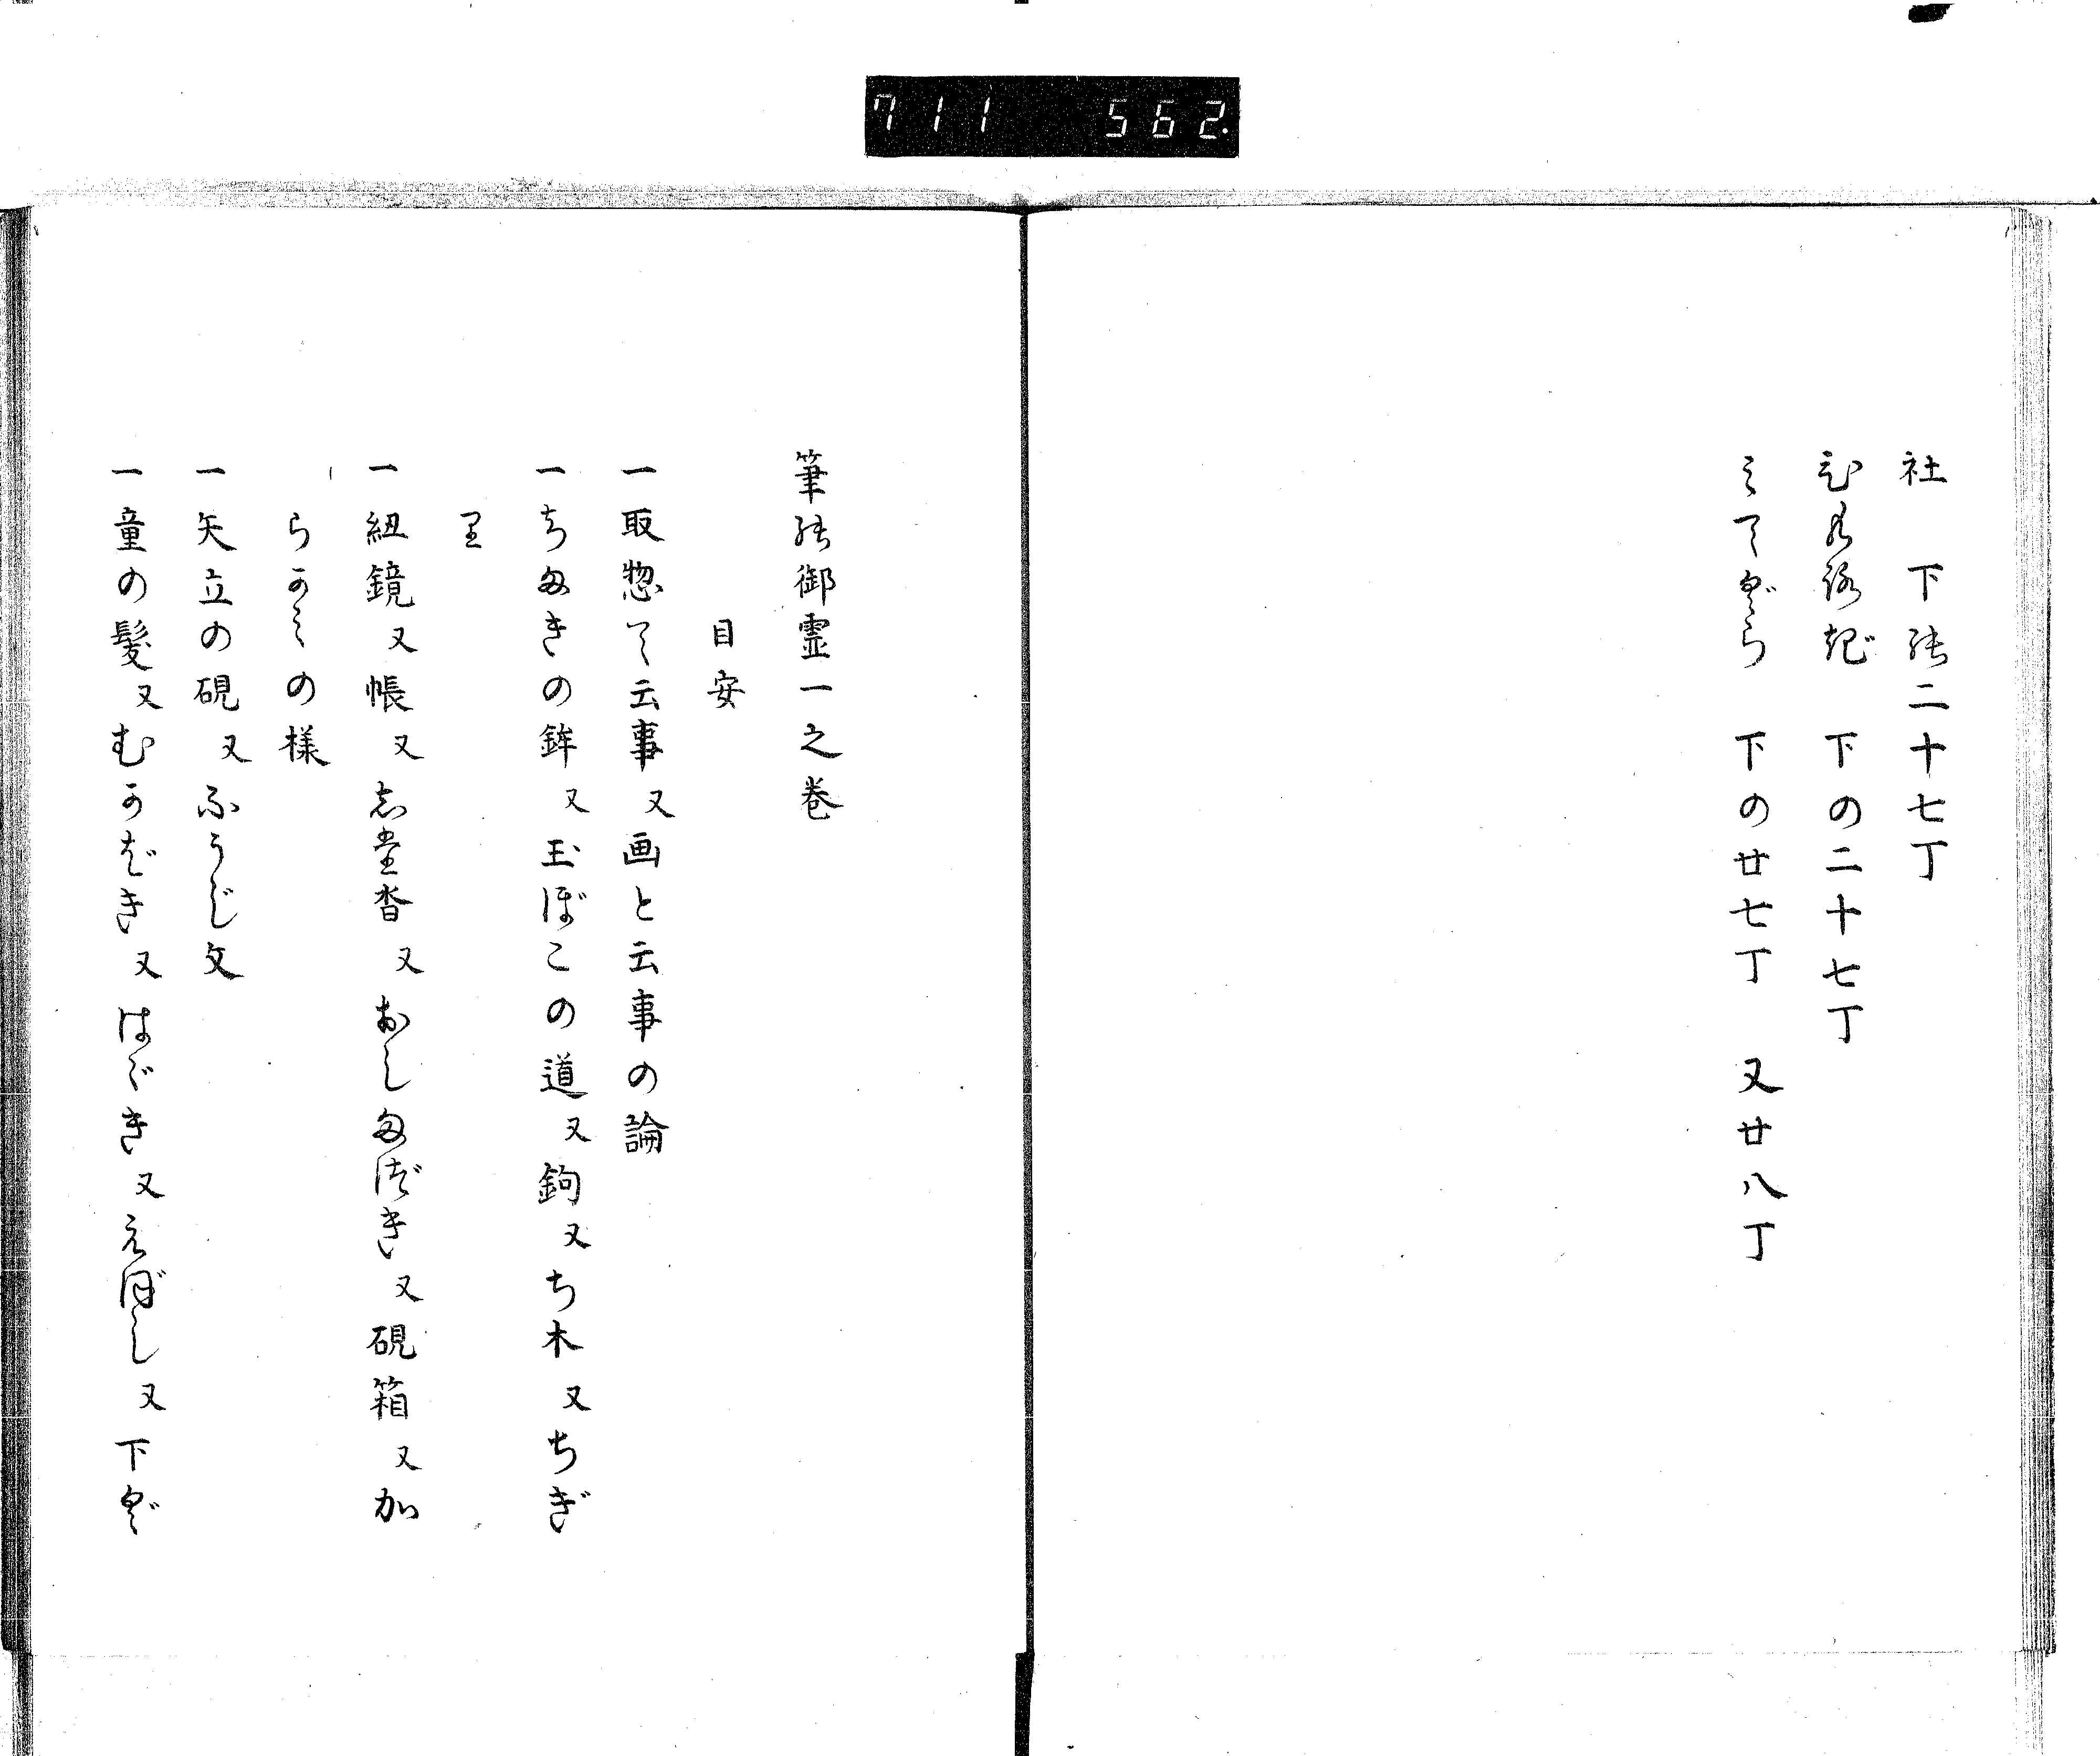 711 562
社 下能二十七丁
ひもろぎ 下の二十七丁
みてぐら 下の廿七丁 又廿八丁
筆能御霊一之巻
目安
一取惣て云事又画と云事の論
一ちまきの鉾又玉ぼこの道又鉤又ち木又ちぎ
り
一紐鏡又帳又志堂沓又おしまづき又硯箱又加
らかみの様
一矢立の硯又ふうじ文
一童の髪又むかばき又はゞき又えぼし又下ぐ